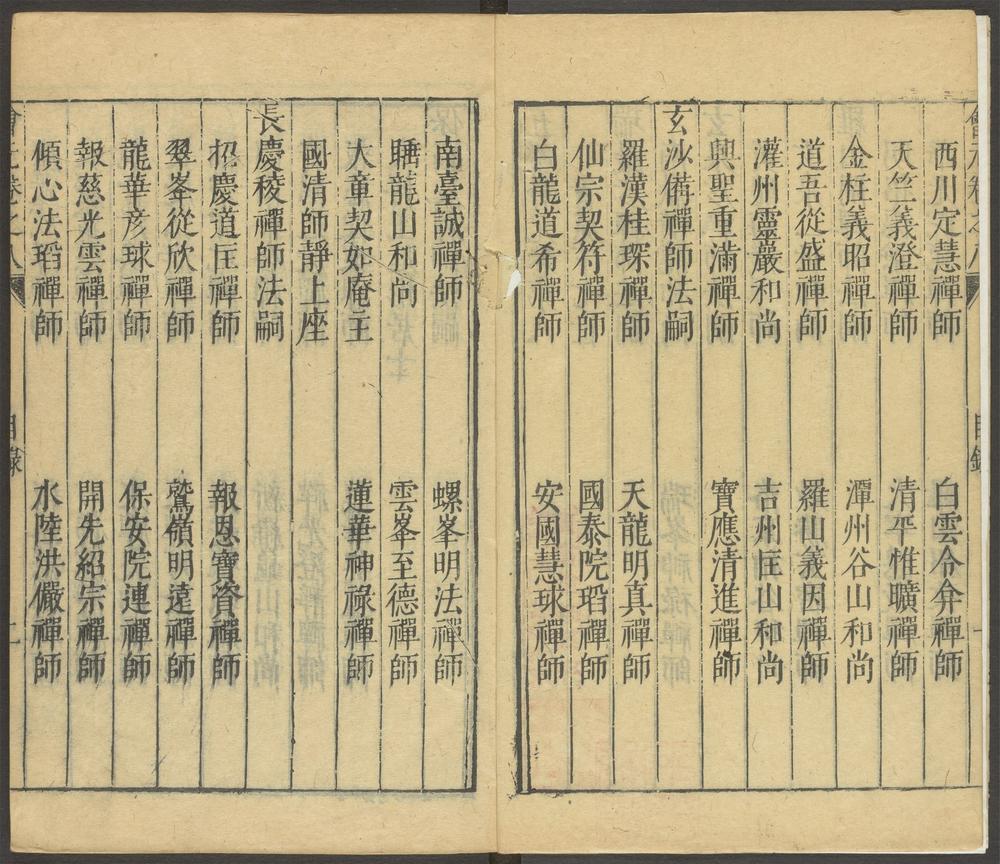 西川定慧禪師　白雲令弇禪師
天竺義澄禪師　清平惟曠禪師
金柱義昭禪師　潭州谷山和尚
道吾從盛禪師　羅山義因禪師
灌州靈巖和尚　吉州匡山和尚
興聖重滿禪師　寶應清進禪師
玄沙備禪師法嗣
羅漢桂琛禪師　天龍明真禪師
仙宗契符禪師　國泰院瑫禪師
白龍道希禪師　安國慧球禪師
南臺誠禪師　螺峯明法禪師
睡龍山和尚　雲峯至德禪師
大章契如庵主　蓮華神祿禪師
國清師靜上座
長慶稜禪師法嗣
招慶道匡禪師　報恩寶資禪師
翠峯從欣禪師　鷲嶺明遠禪師
龍華彥球禪師　保安院連禪師
報慈光雲禪師　開先紹宗禪師
傾心法瑫禪師　水陸洪儼禪師
會元卷之八　目錄　二